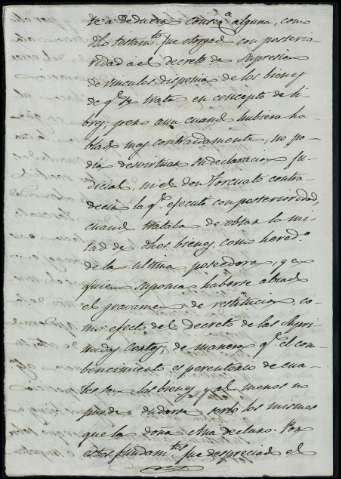 te a deducir consecª alguna, como
dho testamtº fue otorgado con posterio-
ridad a el decreto de supresion
de vinculos disponia de los bienes
de qº se trata en concepto de li-
bres; pero aun cuando hubiera ha-
blado muy contrariamente, no po-
dia desvirtuar su declaracion ju-
dicial, ni el don Torcuato contra-
decia la qº efectuó con posterioridad,
cuando trataba de obtener la mi-
tad de dhos bienes, como hered.º
de la ultima poseedora, y a
quien suponia haberse alzado
el gravamen de restitucion, co-
mo efecto del decreto de las supri-
midas Cortes; de manera qº el con-
bencimiento es perentorio de cua-
les son los bienes, y al menos no
puede dudarse, son los mismos
que la doña Ana declaro. Por
estos fundamtºs fue despreciado el